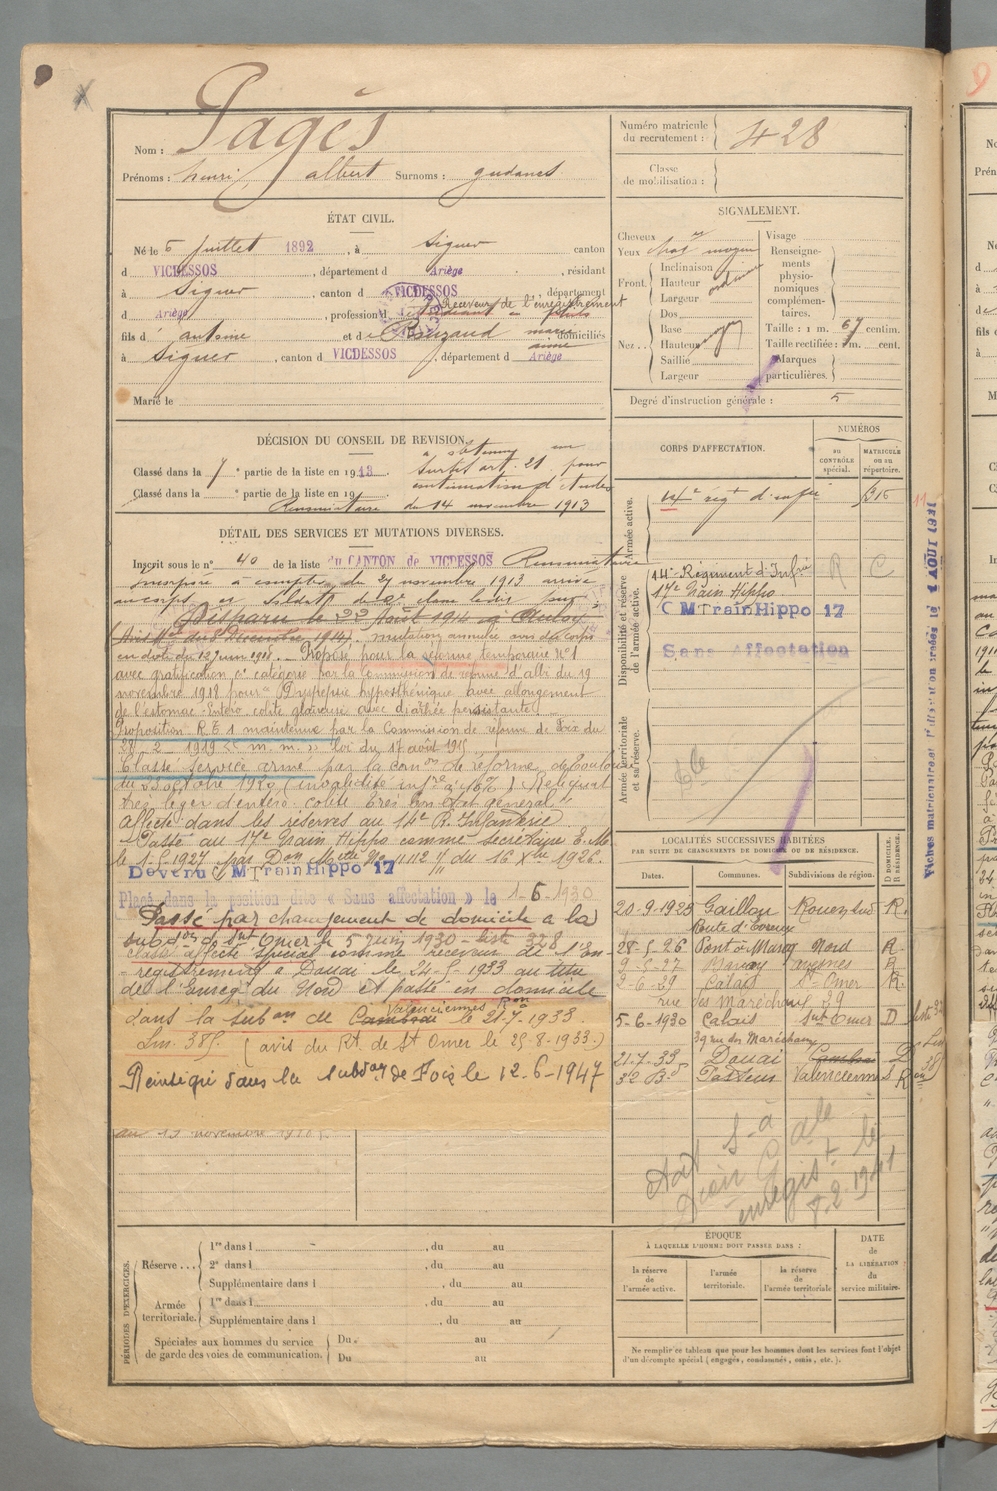 Nom : Pagès
Prénoms : henri albert Surnoms : gudanes
Numéro matricule du recrutement : 428
Classe de mobilisation :
ÉTAT CIVIL.
Né le 5 juillet 1892, à Siguer canton
d VICDESSOS, département d Ariège, résidant
à Siguer, canton d VICDESSOS, département
d Ariège, profession d Receveur de l'enregistrement
fils d' antoine et de Rauzaud marie domiciliés
à Siguer, canton d VICDESSOS, département d Ariège
Marié le
SIGNALEMENT.
Cheveux
Yeux moyen
Front. Inclinaison
Hauteur
Largeur
Nez.. Dos
Base moyen
Hauteur
Saillie
Largeur
Visage
Renseignements physionomiques complémentaires.
Taille : 1 m. 67 centim.
Taille rectifiée : m. cent.
Marques particulières.
Degré d'instruction générale : 5
DÉCISION DU CONSEIL DE REVISION.
Classé dans la 7e partie de la liste en 1913. a obtenu un
Classé dans la e partie de la liste en 19 sursis art. 21 pour
continuation d'études
du 14 novembre 1913
DÉTAIL DES SERVICES ET MUTATIONS DIVERSES.
Inscrit sous le n° 40 de la liste du CANTON de VICDESSOS
Incorporé à compter du 27 novembre 1913 arrivé
au corps et soldat de 2e classe ledit jour
Disparu le 22 août 1914 à
(Avis Mel du 8 Décembre 1914). mutation annulée avis du corps
en date du 12 juin 1918. Proposé pour la réforme temporaire N°1
avec gratification 6e catégorie par la Commission de réforme d'albi du 19
novembre 1918 pour Dyspepsie hyposthénique avec allongement
de l'estomac. Entéro colite glaireuse avec diarhée persistante
Proposition R.T. 1 maintenue par la Commission de réforme de Foix du
28-2-1919 « m. m. » Loi du 17 août 1915
Classé service armé par la Comon de réforme de Toulouse
du 22 octobre 1920 (invalidité infre à 10%) Reliquat
très léger d'entéro colite très bon état général
Affecté dans les réserves au 14e R. Infanterie
Passé au 17e Train Hippo comme secrétaire E.M.
le 1-5-1927 par Don Melle No 11112 du 16 Xbre 1926.
Devenu C M Train Hippo 17
Placé dans la position dite « Sans affectation » le 1-6-1930
Passé par changement de domicile à la
subdon de St Omer le 5 juin 1930 - liste 328
classé affecté spécial comme receveur de l'En-
-registrement à Douai le 24-5-1933 au titre
de l'Enregt du Nord et passé en domicile
dans la subon de Cambrai Valenciennes le 21-7-1933.
Lin. 385. (avis du Rt. de St Omer le 25-8-1933.)
Réintégré dans la subdon de Foix le 12-6-1947
au 13 novembre
CORPS D'AFFECTATION.
NUMÉROS
au CONTRÔLE spécial.
MATRICULE ou au répertoire.
Armée active.
14e régt d'infie
Disponibilité et réserve de l'armée active.
14e Régiment d'Infie R C
17e Train Hippo
C M Train Hippo 17
Sans Affectation
Armée territoriale et sa réserve.
LOCALITÉS SUCCESSIVES HABITÉES
PAR SUITE DE CHANGEMENTS DE DOMICILE OU DE RÉSIDENCE.
Dates. Communes. Subdivisions de région. D DOMICILE. R RÉSIDENCE.
20-9-1923 Gaillon Rouen Sud R.
28-5-26 Pont à Marcq Nord R
9-5-27 Bavay avesnes R
2-6-29 Calais St Omer R.
rue des Maréchaux 39
5-6-1930 Calais Snt Omer D
39 rue des Maréchaux
21-7-33 Douai Cambrai D
32 Bd Pasteur Valenciennes R
enregist le
8.2.1941
Fiches matricules et
AOUT 1931
PÉRIODES D'EXERCICES.
Réserve... 1re dans l , du au
2e dans l , du au
Supplémentaire dans l , du au
Armée territoriale. 1re dans l , du au
Supplémentaire dans l , du au
Spéciales aux hommes du service de garde des voies de communication. Du au
Du au
ÉPOQUE
À LAQUELLE L'HOMME DOIT PASSER DANS :
la réserve de l'armée active.
l'armée territoriale.
la réserve de l'armée territoriale
DATE de LA LIBÉRATION du service militaire.
Ne remplir ce tableau que pour les hommes dont les services font l'objet
d'un décompte spécial (engagés, condamnés, omis, etc.).